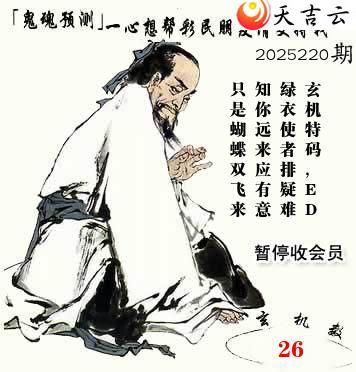 天吉云
「鬼魂预测」一心想帮彩民朋
2025220期
玄机特码,ED
绿衣使者排疑难
知你远来应有意
只是蝴蝶双飞来
暂停收会员
玄机数
26